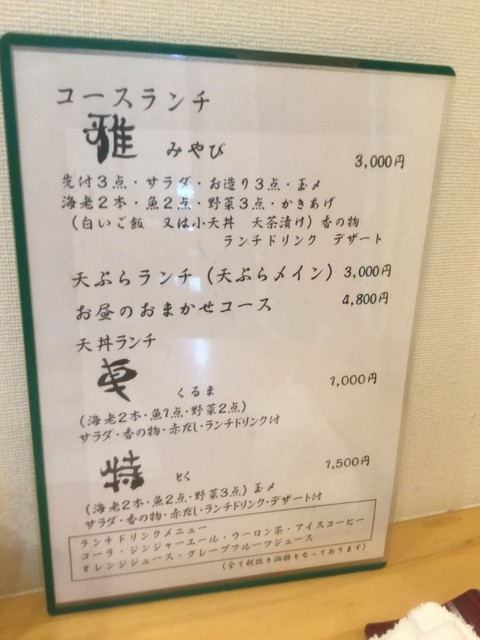 コースランチ
雅 みやび 3,000円
先付3点・サラダ・お造り3点・玉〆
海老2本・魚2点・野菜3点・かきあげ
(白いご飯 又は小天丼 天茶漬け)香の物
ランチドリンク デザート
天ぷらランチ(天ぷらメイン) 3,000円
お昼のおまかせコース 4,800円
天丼ランチ
車 くるま 1,000円
(海老2本・魚1点・野菜2点)
サラダ・香の物・赤だし・ランチドリンク付
特 とく 1,500円
(海老2本・魚2点・野菜3点)玉〆
サラダ・香の物・赤だし・ランチドリンク・デザート付
ランチドリンクメニュー
コーラ・ジンジャーエール・ウーロン茶・アイスコーヒー
オレンジジュース・グレープフルーツジュース
(全て税抜き価格となっております)